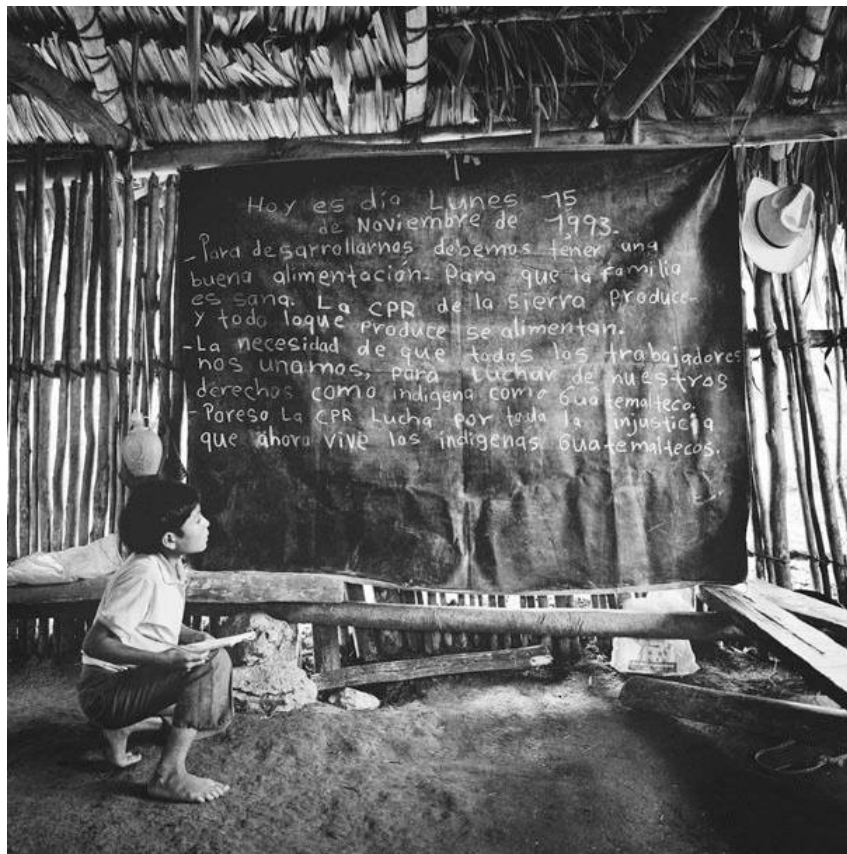 Hoy es día Lunes 15
de Noviembre de 1993.
- Para desarrollarnos debemos tener una
buena alimentación. Para que la familia
es sana. La CPR de la sierra Produce-
y todo loque produce se alimentan.
- La necesidad de que todos los trabajadores
nos unamos, para Luchar de nuestros
derechos como indigena como Guatemalteco.
- Poreso La CPR Lucha por toda la injusticia
que ahora vive los indigenas Guatemaltecos.